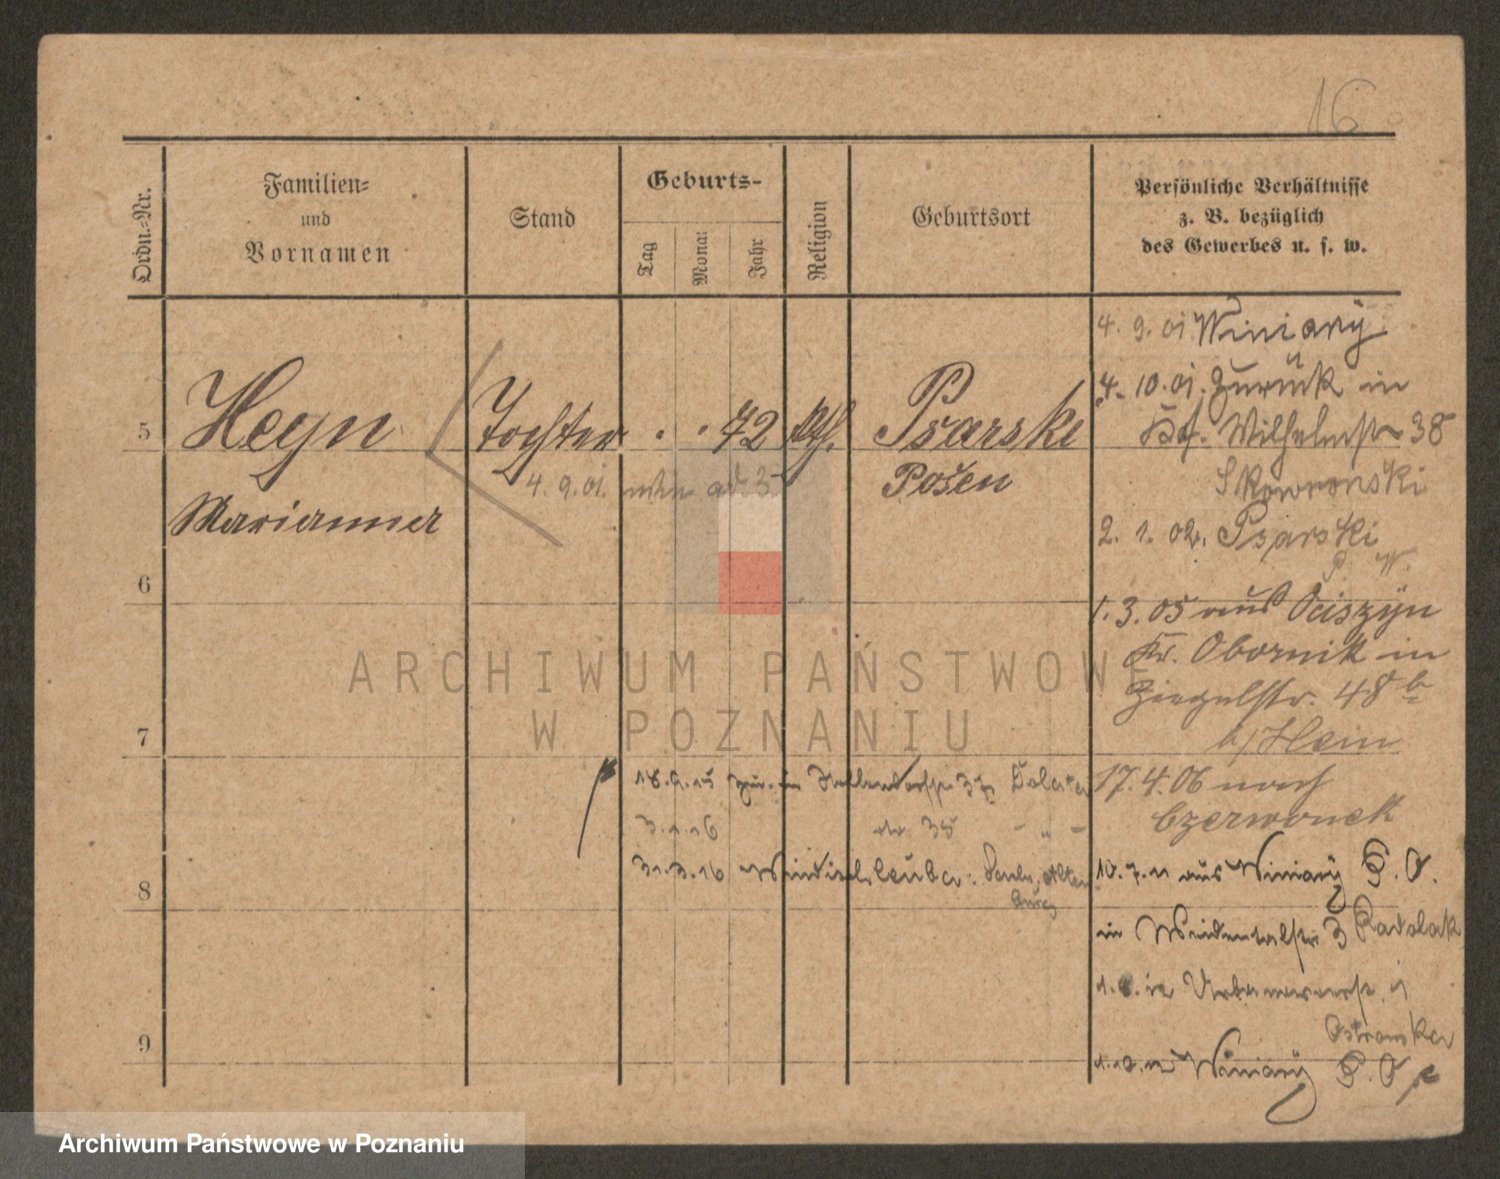 16
Ordn.-Nr.
Familien-
und
Vornamen
Stand
Geburts-
Tag
Monat
Jahr
Religion
Geburtsort
Persönliche Verhältnisse
z. B. bezüglich
des Gewerbes u. s. w.
5
Heyn
Marianna
Tochter
. . 72
kth.
Psarskie
Posen
4. 9. 01. ad 5
4. 9. 01 Winiary
4. 10. 01. Zurück in
Wilhelmstr 38
Skowronski
2. 1. 02. Psarski
P. W.
1. 3. 05 aus Ociszyn
Kr. Obornik in
Ziegelstr. 48 b
b/ Hein
17. 4. 06 nach
Czerwonek
6
7
8
9
18.9.15 zur. in 37
3.1.16 35 - " -
31.3.16 Alten
burg
10.7.11 aus Winiary P. O.
in 3 Radolak
1.8. in 1
Ostrowska
1.10.12 Winiary P. O
ARCHIWUM PAŃSTWOWE
W POZNANIU
Archiwum Państwowe w Poznaniu